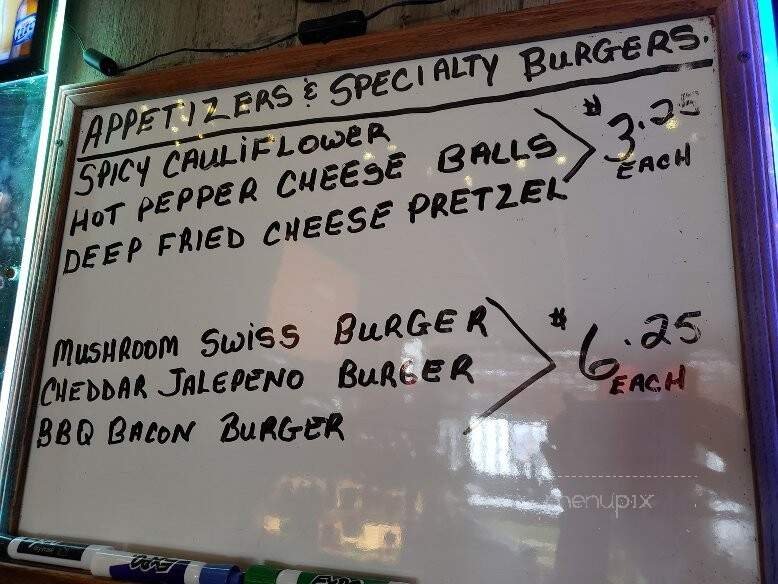 APPETIZERS & SPECIALTY BURGERS.
SPICY CAULIFLOWER
HOT PEPPER CHEESE BALLS
DEEP FRIED CHEESE PRETZEL
$3.25
EACH
MUSHROOM SWISS BURGER
CHEDDAR JALEPENO BURGER
BBQ BACON BURGER
$6.25
EACH
menupix
EXPO